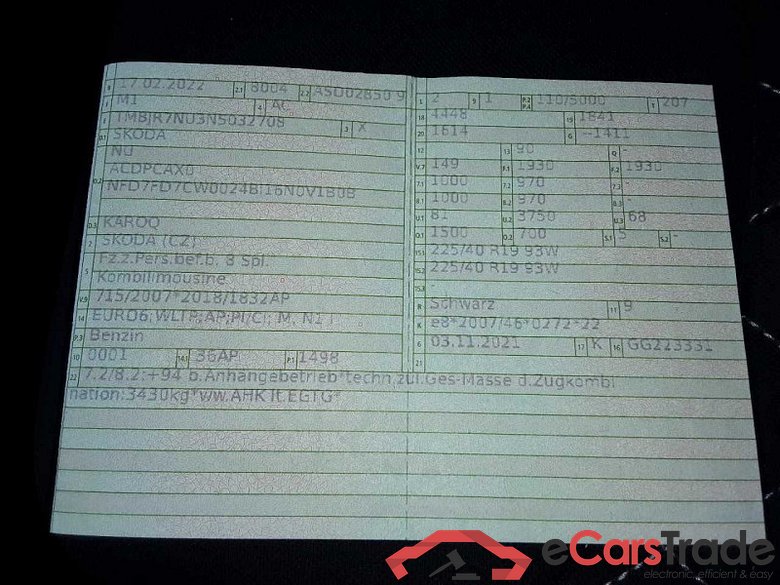 17.02.2022 2.1 8004 2.2
M1 4 AC
TMBJR7NU3N5032708 3 X
SKODA
NU
ACDPCAX0
NFD7FD7CW0024BI16N0V1B0B
D.3 KAROQ
2 SKODA (CZ)
5 Fz.z.Pers.bef.b. 8 Spl.
Kombilimousine
V.9 715/2007*2018/1832AP
14 EURO6;WLTP;AP;PI/CI; M, N1 I
P.3 Benzin
10 0001 14.1 36AP P.1 1498
22 7.2/8.2:+94 b.Anhängebetrieb*techn.zul.Ges-Masse d.Zugkombi
nation:3430kg*ww.AHK lt.EGTG*
L 2 9 1 P.2 P.4 110/5000 T 207
18 4448 19 1841
20 1614 G --1411
12 - 13 90 Q -
V.7 149 F.1 1930 F.2 1930
7.1 1000 7.2 970 7.3 -
8.1 1000 8.2 970 8.3 -
U.1 81 U.2 3750 U.3 68
O.1 1500 O.2 700 S.1 5 S.2 -
15.1 225/40 R19 93W
15.2 225/40 R19 93W
15.3 -
R Schwarz 11 9
K e8*2007/46*0272*22
6 03.11.2021 17 K 16 GG223331
21
eCarsTrade
electronic, efficient & easy